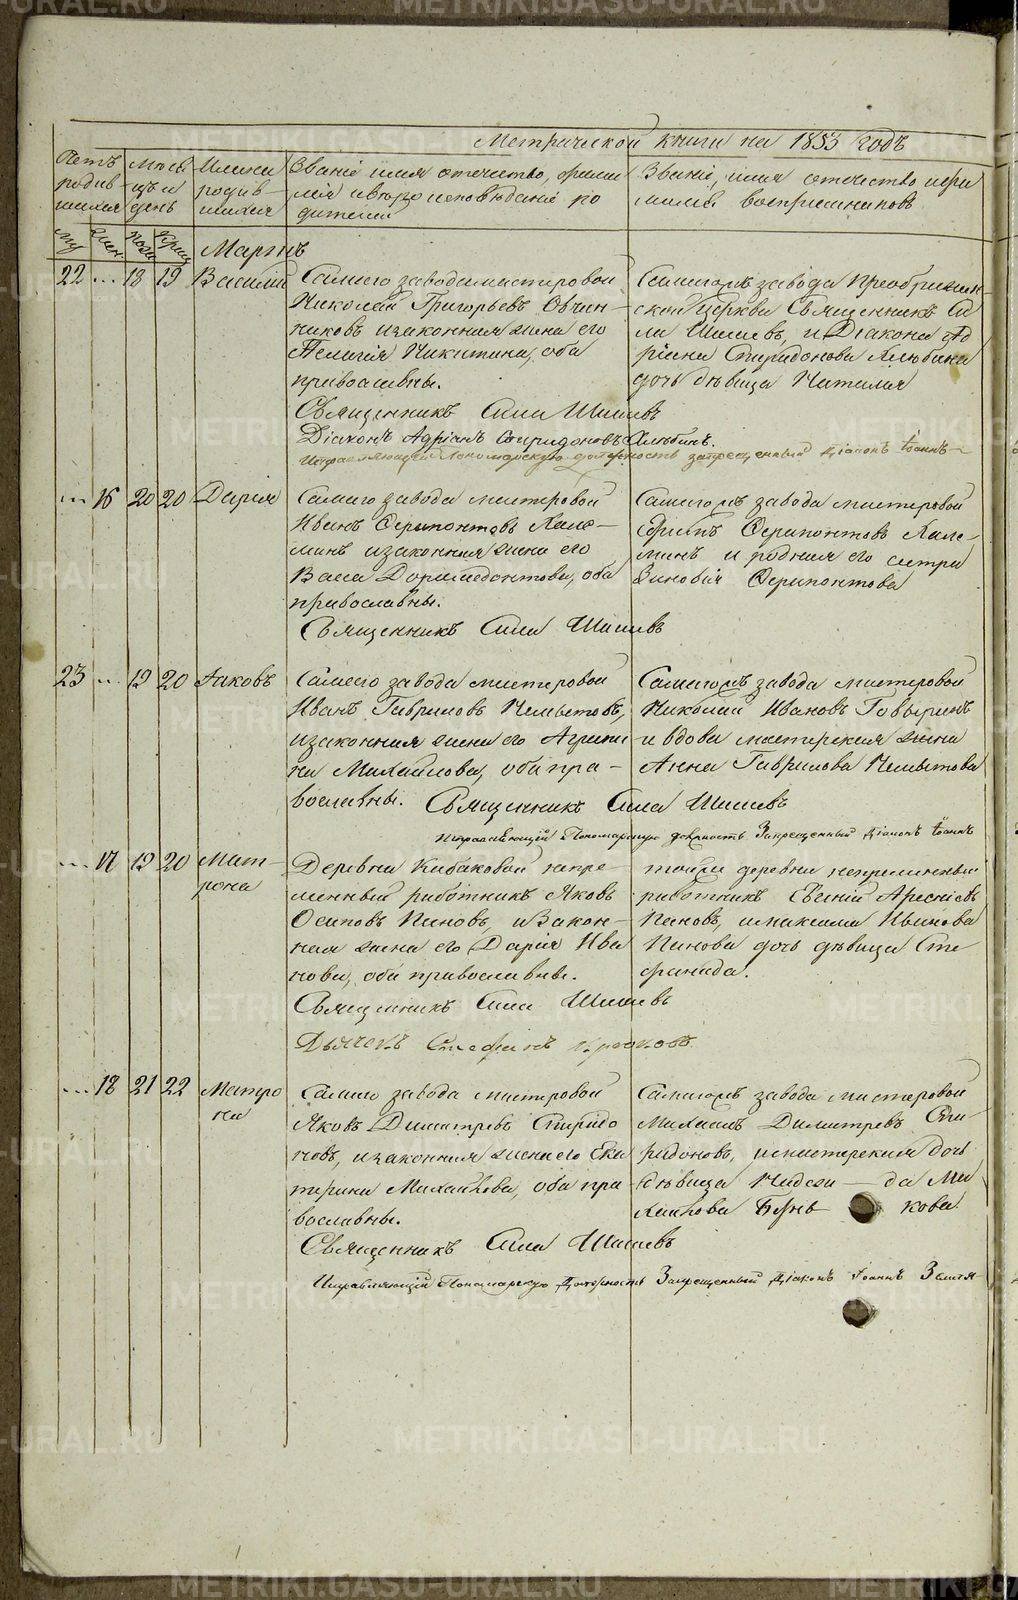 Метрической книги на 1853 годъ
Счетъ родив- шихся
Мѣся- цъ и день
Имена родив- шихся
Званіе имя отечество, фами
лія и вѣроисповѣданіе ро
дителей
Званіе, имя отечество и фа
милія воспріемниковъ
му жен рож крещ
Мартъ
22 ... 18 19 Василій
Самаго завода мастеровой
Николай Григорьевъ Овчин-
никовъ и законная жена его
Пелагія Никитина, оба
православны.
Священникъ Сила Шишевъ
Діаконъ Адріанъ Спиридоновъ Хлюбинъ.
Исправляющій Пономарскую должность запрещенный Діаконъ Іоаннъ
Самагожъ завода Преображен
ской церкви Священникъ Си
ла Шишевъ, и Діакона Ад
ріана Спиридонова Хлюбина
дочь дѣвица Наталия
... 16 20 20 Дарія
Самаго завода мастеровой
Иванъ Ферапонтовъ Лале-
минъ и законная жена его
Васса Доримедонтова, оба
православны.
Священникъ Сила Шишевъ
Самагожъ завода мастеровой
Ферапонтовъ Лале-
минъ и родная его сестра
Зиновія Ферапонтова
23 ... 19 20 Іаковъ
Самаго завода мастеровой
Иванъ Гавриловъ Чемытовъ,
и законная жена его Агрипи
на Михайлова, оба пра-
вославны. Священникъ Сила Шишевъ
Исправляющій Пономарскую должность Запрещенный Діаконъ Іоаннъ
Самагожъ завода мастеровой
Николай Ивановъ Говыринъ
и вдова мастерская жена
Анна Гаврилова Чемытова
... 17 19 20 Мат-
рона
Деревни Кабаковой непре-
менный работникъ Яковъ
Осиповъ Пановъ, и Закон-
ная жена его Дарія Ива
нова, оба православны.
Священникъ Сила Шишевъ
Дьячекъ Стефанъ
тойже деревни непременный
работникъ
Пановъ, и
Панова дочь дѣвица Сте
фанида.
... 18 21 22 Матро
на
Самаго завода мастеровой
Яковъ Димитревъ Спиридо
новъ, и законная жена его Ека
терина Михайлова, оба пра
вославны.
Священникъ Сила Шишевъ
Исправляющій Пономарскую Должность Запрещенный Діаконъ Іоаннъ
Самагожъ завода мастеровой
Михаилъ Димитревъ Спи-
ридоновъ, и мастерская дочь
дѣвица Надеж — да Ми
хаилова кова
METRIKI.GASO-URAL.RU